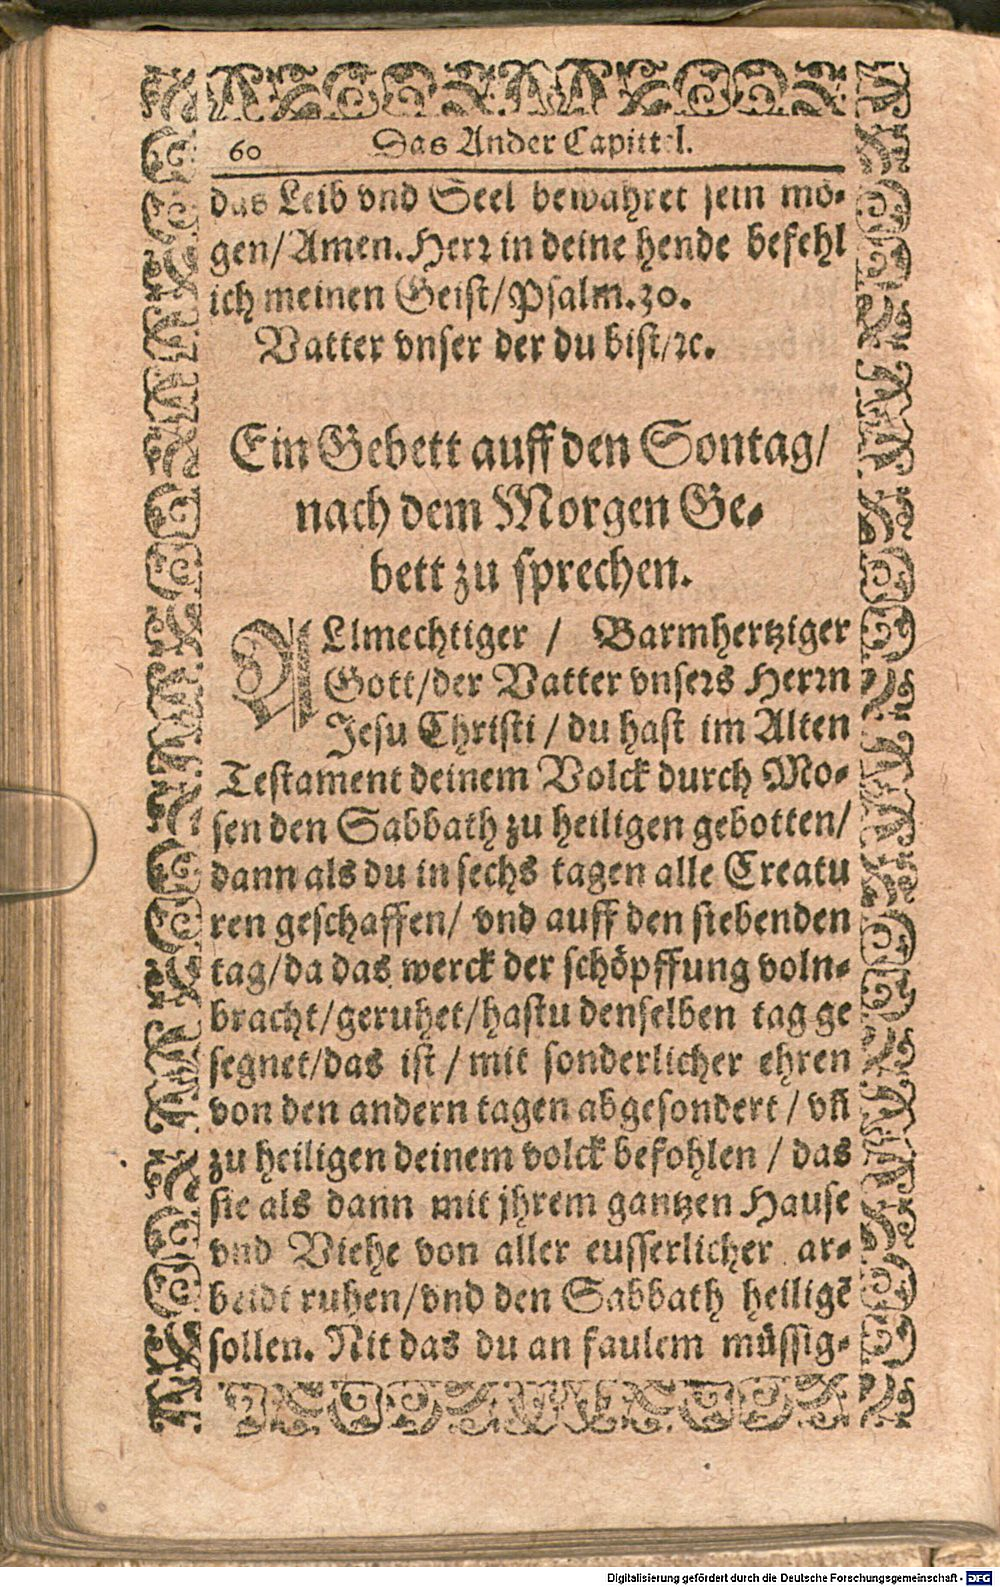 60 Das Ander Capittel.
das Leib vnd Seel bewahret sein mö-
gen/ Amen. Herr in deine hende befehl
ich meinen Geist/ Psalm. 30.
Vatter vnser der du bist/ ꝛc.
Ein Gebett auff den Sontag/
nach dem Morgen Ge-
bett zu sprechen.
ALlmechtiger / Barmhertziger
Gott/ der Vatter vnsers Herrn
Jesu Christi / du hast im Alten
Testament deinem Volck durch Mo-
sen den Sabbath zu heiligen gebotten/
dann als du in sechs tagen alle Creatu
ren geschaffen/ vnd auff den siebenden
tag/ da das werck der schöpffung voln-
bracht/ geruhet/ hastu denselben tag ge
segnet/ das ist / mit sonderlicher ehren
von den andern tagen abgesondert / vñ
zu heiligen deinem volck befohlen / das
sie als dann mit jhrem gantzen Hause
vnd Viehe von aller eusserlicher ar-
beidt ruhen/ vnd den Sabbath heiligē
sollen. Nit das du an faulem müssig-
Digitalisierung gefördert durch die Deutsche Forschungsgemeinschaft - DFG